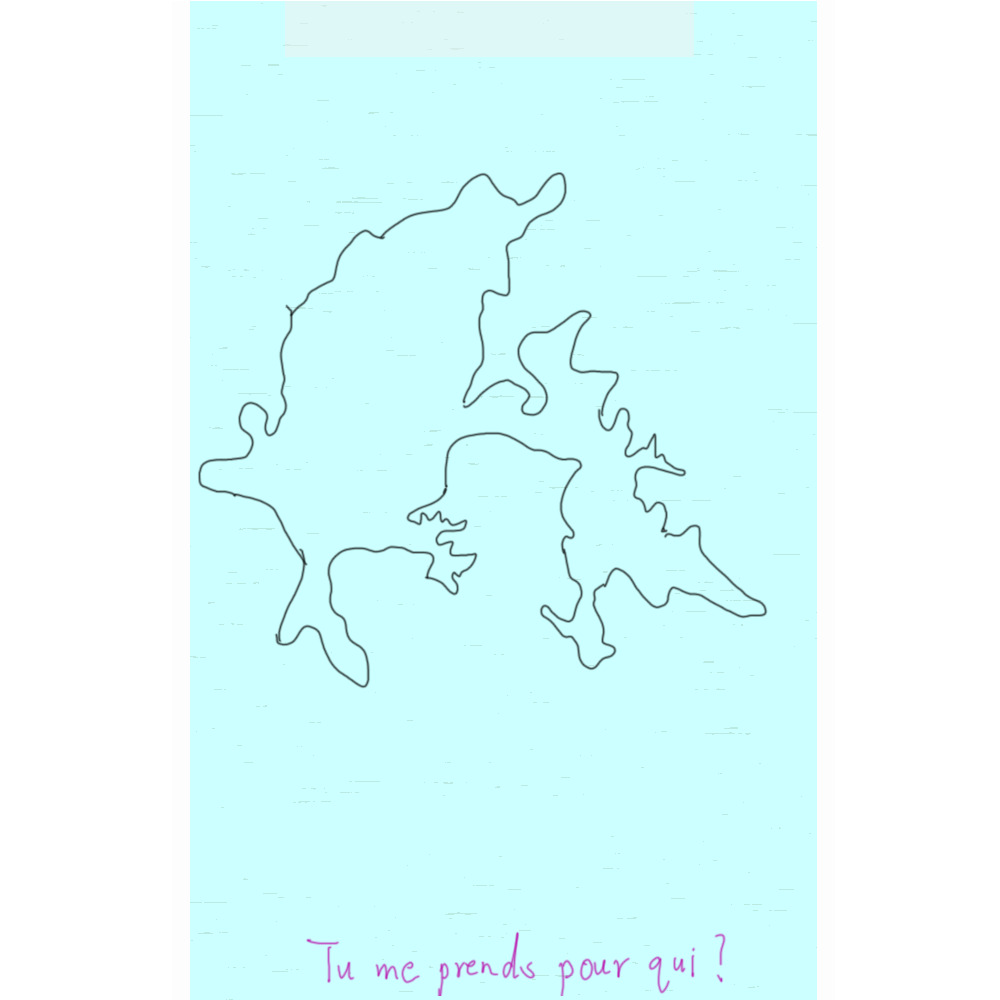 Tu me prends pour qui ?